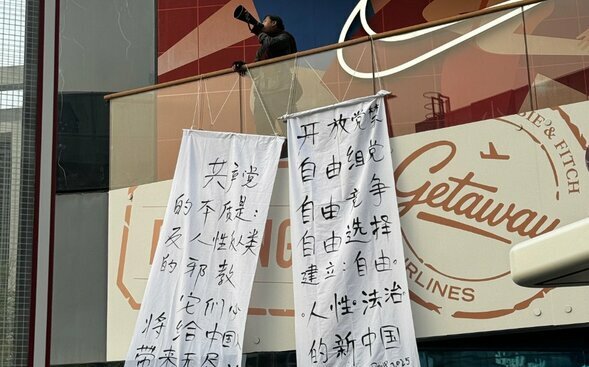 共产党
的本质是：
反人性类
的邪教
它们
将给中国
带来无尽
开放党禁
自由组党
自由竞争
自由选择
建立：自由。
。人性。法治
的新中国
2025
& FITCH
Getaway